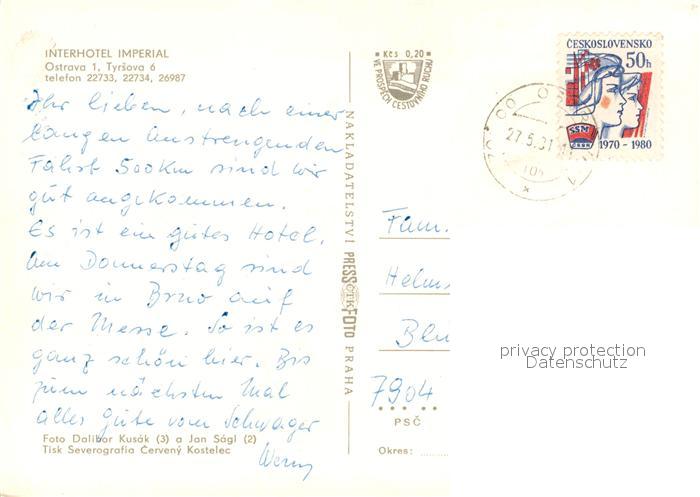 INTERHOTEL IMPERIAL
Ostrava 1, Tyršova 6
telefon 22733, 22734, 26987
Ihr lieben, nach einer
langen anstrengenden
Fahrt 500 km sind wir
gut angekommen.
Es ist ein gutes Hotel.
Am Donnerstag sind
wir in Brno auf
der Messe. So ist es
ganz schön hier. Bis
zum nächsten Mal
alles gute vom Schwager
Foto Dalibor Kusák (3) a Jan Ságl (2)
Tisk Severografia Červený Kostelec
NAKLADATELSTVÍ PRESSFOTO PRAHA
ČTK
Kčs 0,20
VE PROSPĚCH CESTOVNÍHO RUCHU
ČESKOSLOVENSKO
50h
SSM
1970 - 1980
27.5.81
Fam.
Helm
Blu
7904
PSČ
Okres:
privacy protection
Datenschutz